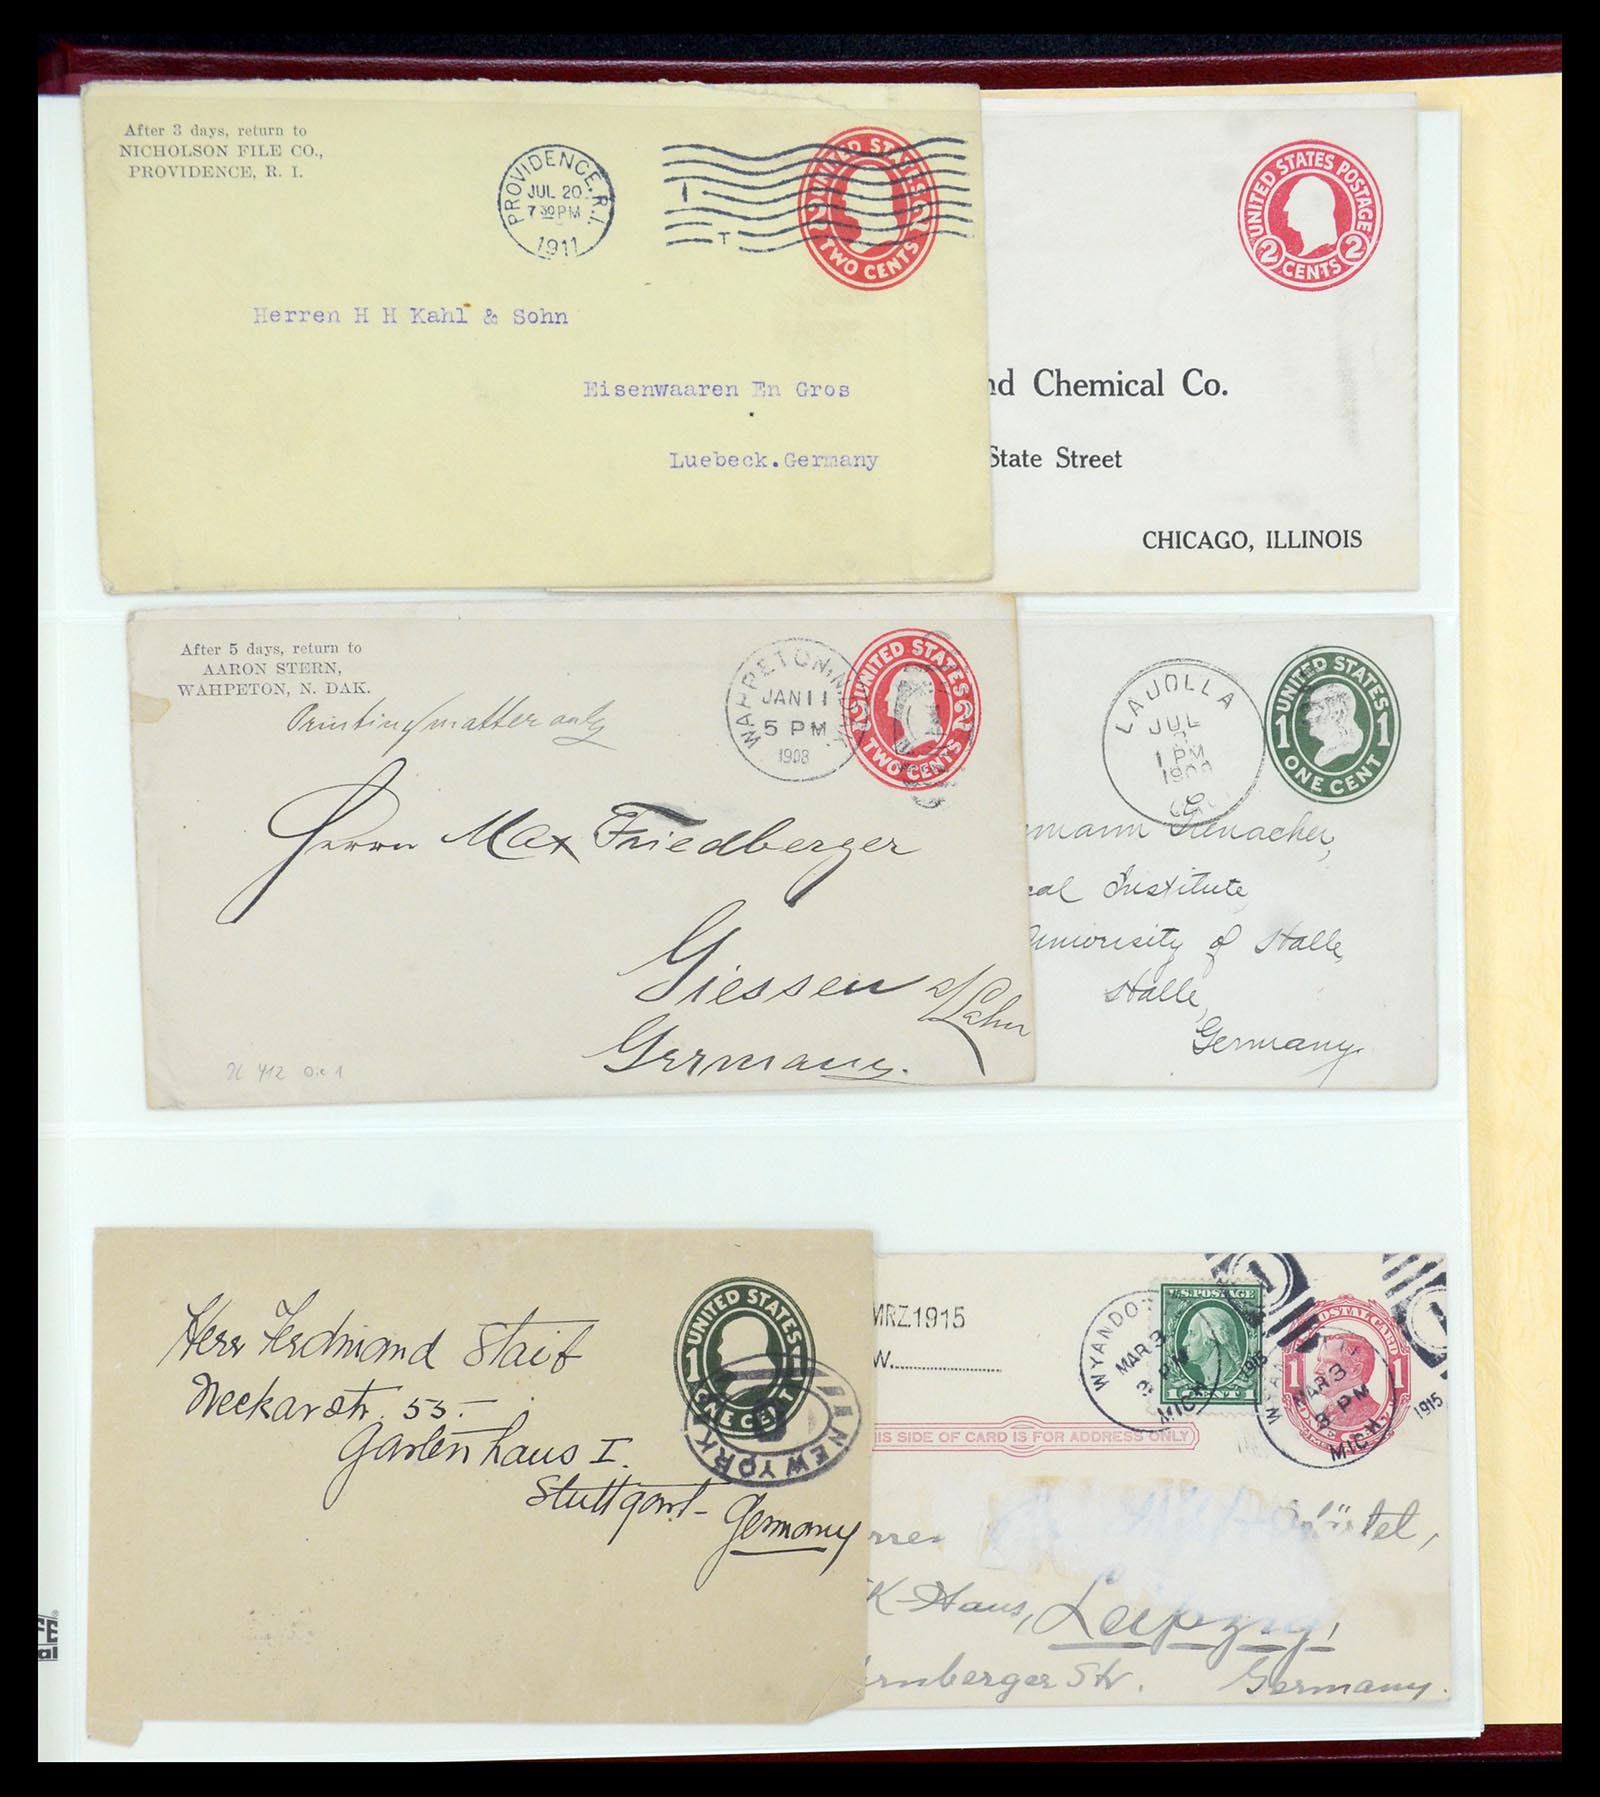 After 3 days, return to
NICHOLSON FILE CO.,
PROVIDENCE, R. I.
PROVIDENCE, R.I.
JUL 20
7 30 PM
1911
1
T
UNITED STATES
2 2
TWO CENTS
Herren H H Kahl & Sohn
Eisenwaaren En Gros
Luebeck.Germany
UNITED STATES POSTAGE
2 CENTS 2
nd Chemical Co.
State Street
CHICAGO, ILLINOIS
After 5 days, return to
AARON STERN,
WAHPETON, N. DAK.
Printing matter only
WAHPETON, N.
JAN 11
5 PM
1908
UNITED STATES
2 2
TWO CENTS
Herrn Max Friedberger
Giessen a/Lahn
Germany.
412
LAJOLLA
JUL
1 PM
UNITED STATES
1 1
ONE CENT
mann
cal Institute,
University of Halle,
Halle,
Germany.
Herr Ferdinand Staib
Neckarstr. 55.-
Gartenhaus I.
Stuttgart- Germany
UNITED STATES
1
ONE CENT
NEW YORK
MRZ.1915
W.
WYANDO
MAR 3
3 PM
MICH
1915
U.S. POSTAGE
1 CENT 1
POSTAL CARD
1 1
MAR 3
3 PM
MICH
1915
IS SIDE OF CARD IS FOR ADDRESS ONLY
K-Haus, Leipzig,
rnberger Str. Germany.